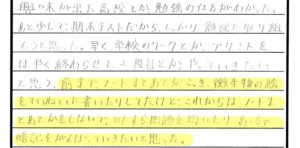 興味が出た高校とか勉強のしかたがわかった。
あと少しで期末テストだから、しっかり勉強に取り組
もうと思った。早く学校のワークとかプリントを
はやく終わらせて、2周目とかやっていきたい
と思う。前まで、ノートまとめとかにつき、微生物の絵
をていねいに書いたりしてたけどこれからはノートま
とめとかをしないで、ひたすら問題を解いたり
暗記をがんばっていきたいと思った。